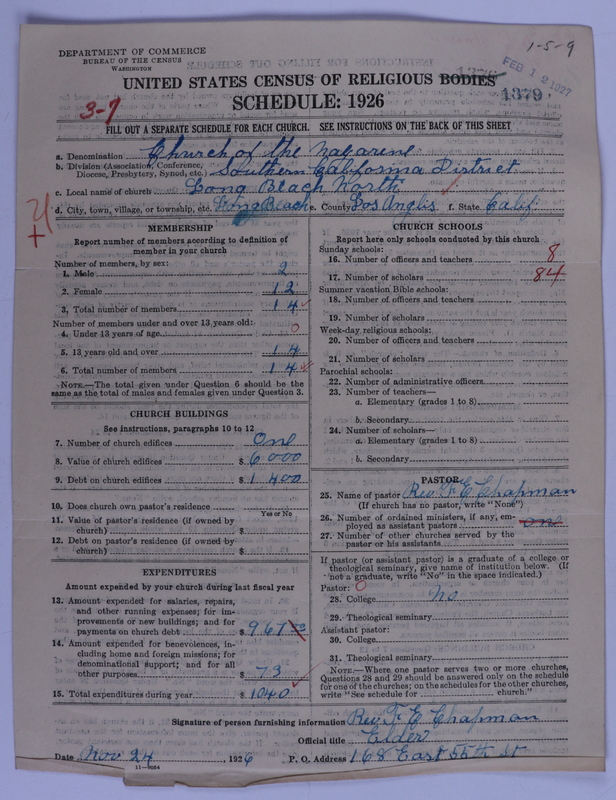 1-5-9
DEPARTMENT OF COMMERCE
BUREAU OF THE CENSUS
WASHINGTON
FEB 12 1927
UNITED STATES CENSUS OF RELIGIOUS BODIES
1379
3-7
SCHEDULE: 1926
FILL OUT A SEPARATE SCHEDULE FOR EACH CHURCH. SEE INSTRUCTIONS ON THE BACK OF THIS SHEET
a. Denomination Church of the Nazarene
b. Division (Association, Conference, Diocese, Presbytery, Synod, etc.) Southern California District
c. Local name of church Long Beach North
d. City, town, village, or township, etc. Long Beach e. County Los Angeles f. State Calif.
MEMBERSHIP
Report number of members according to definition of
member in your church
Number of members, by sex:
1. Male 2
2. Female 12
3. Total number of members 14
Number of members under and over 13 years old:
4. Under 13 years of age 0
5. 13 years old and over 14
6. Total number of members 14
NOTE.—The total given under Question 6 should be the
same as the total of males and females given under Question 3.
CHURCH BUILDINGS
See instructions, paragraphs 10 to 12
7. Number of church edifices One
8. Value of church edifices $ 6000
9. Debt on church edifices $ 1400
10. Does church own pastor's residence
Yes or No
11. Value of pastor's residence (if owned by
church) $
12. Debt on pastor's residence (if owned by
church) $
EXPENDITURES
Amount expended by your church during last fiscal year
13. Amount expended for salaries, repairs,
and other running expenses; for im-
provements or new buildings; and for
payments on church debt $ 967
14. Amount expended for benevolences, in-
cluding home and foreign missions; for
denominational support; and for all
other purposes $ 73
15. Total expenditures during year $ 1040
CHURCH SCHOOLS
Report here only schools conducted by this church
Sunday schools:
16. Number of officers and teachers 8
17. Number of scholars 84
Summer vacation Bible schools:
18. Number of officers and teachers
19. Number of scholars
Week-day religious schools:
20. Number of officers and teachers
21. Number of scholars
Parochial schools:
22. Number of administrative officers
23. Number of teachers—
a. Elementary (grades 1 to 8)
b. Secondary
24. Number of scholars—
a. Elementary (grades 1 to 8)
b. Secondary
PASTOR
25. Name of pastor Rev. F. E. Chapman
(If church has no pastor, write "None")
26. Number of ordained ministers, if any, em-
ployed as assistant pastors one
27. Number of other churches served by the
pastor or his assistants
If pastor (or assistant pastor) is a graduate of a college or
theological seminary, give name of institution below. (If
not a graduate, write "No" in the space indicated.)
Pastor: 0
28. College No
29. Theological seminary
Assistant pastor:
30. College
31. Theological seminary
NOTE.—Where one pastor serves two or more churches,
Questions 28 and 29 should be answered only on the schedule
for one of the churches; on the schedules for the other churches,
write "See schedule for church."
Signature of person furnishing information Rev. F. E. Chapman
Official title Elder
Date Nov 24, 1926 P. O. Address 168 East 55th St
11-9064